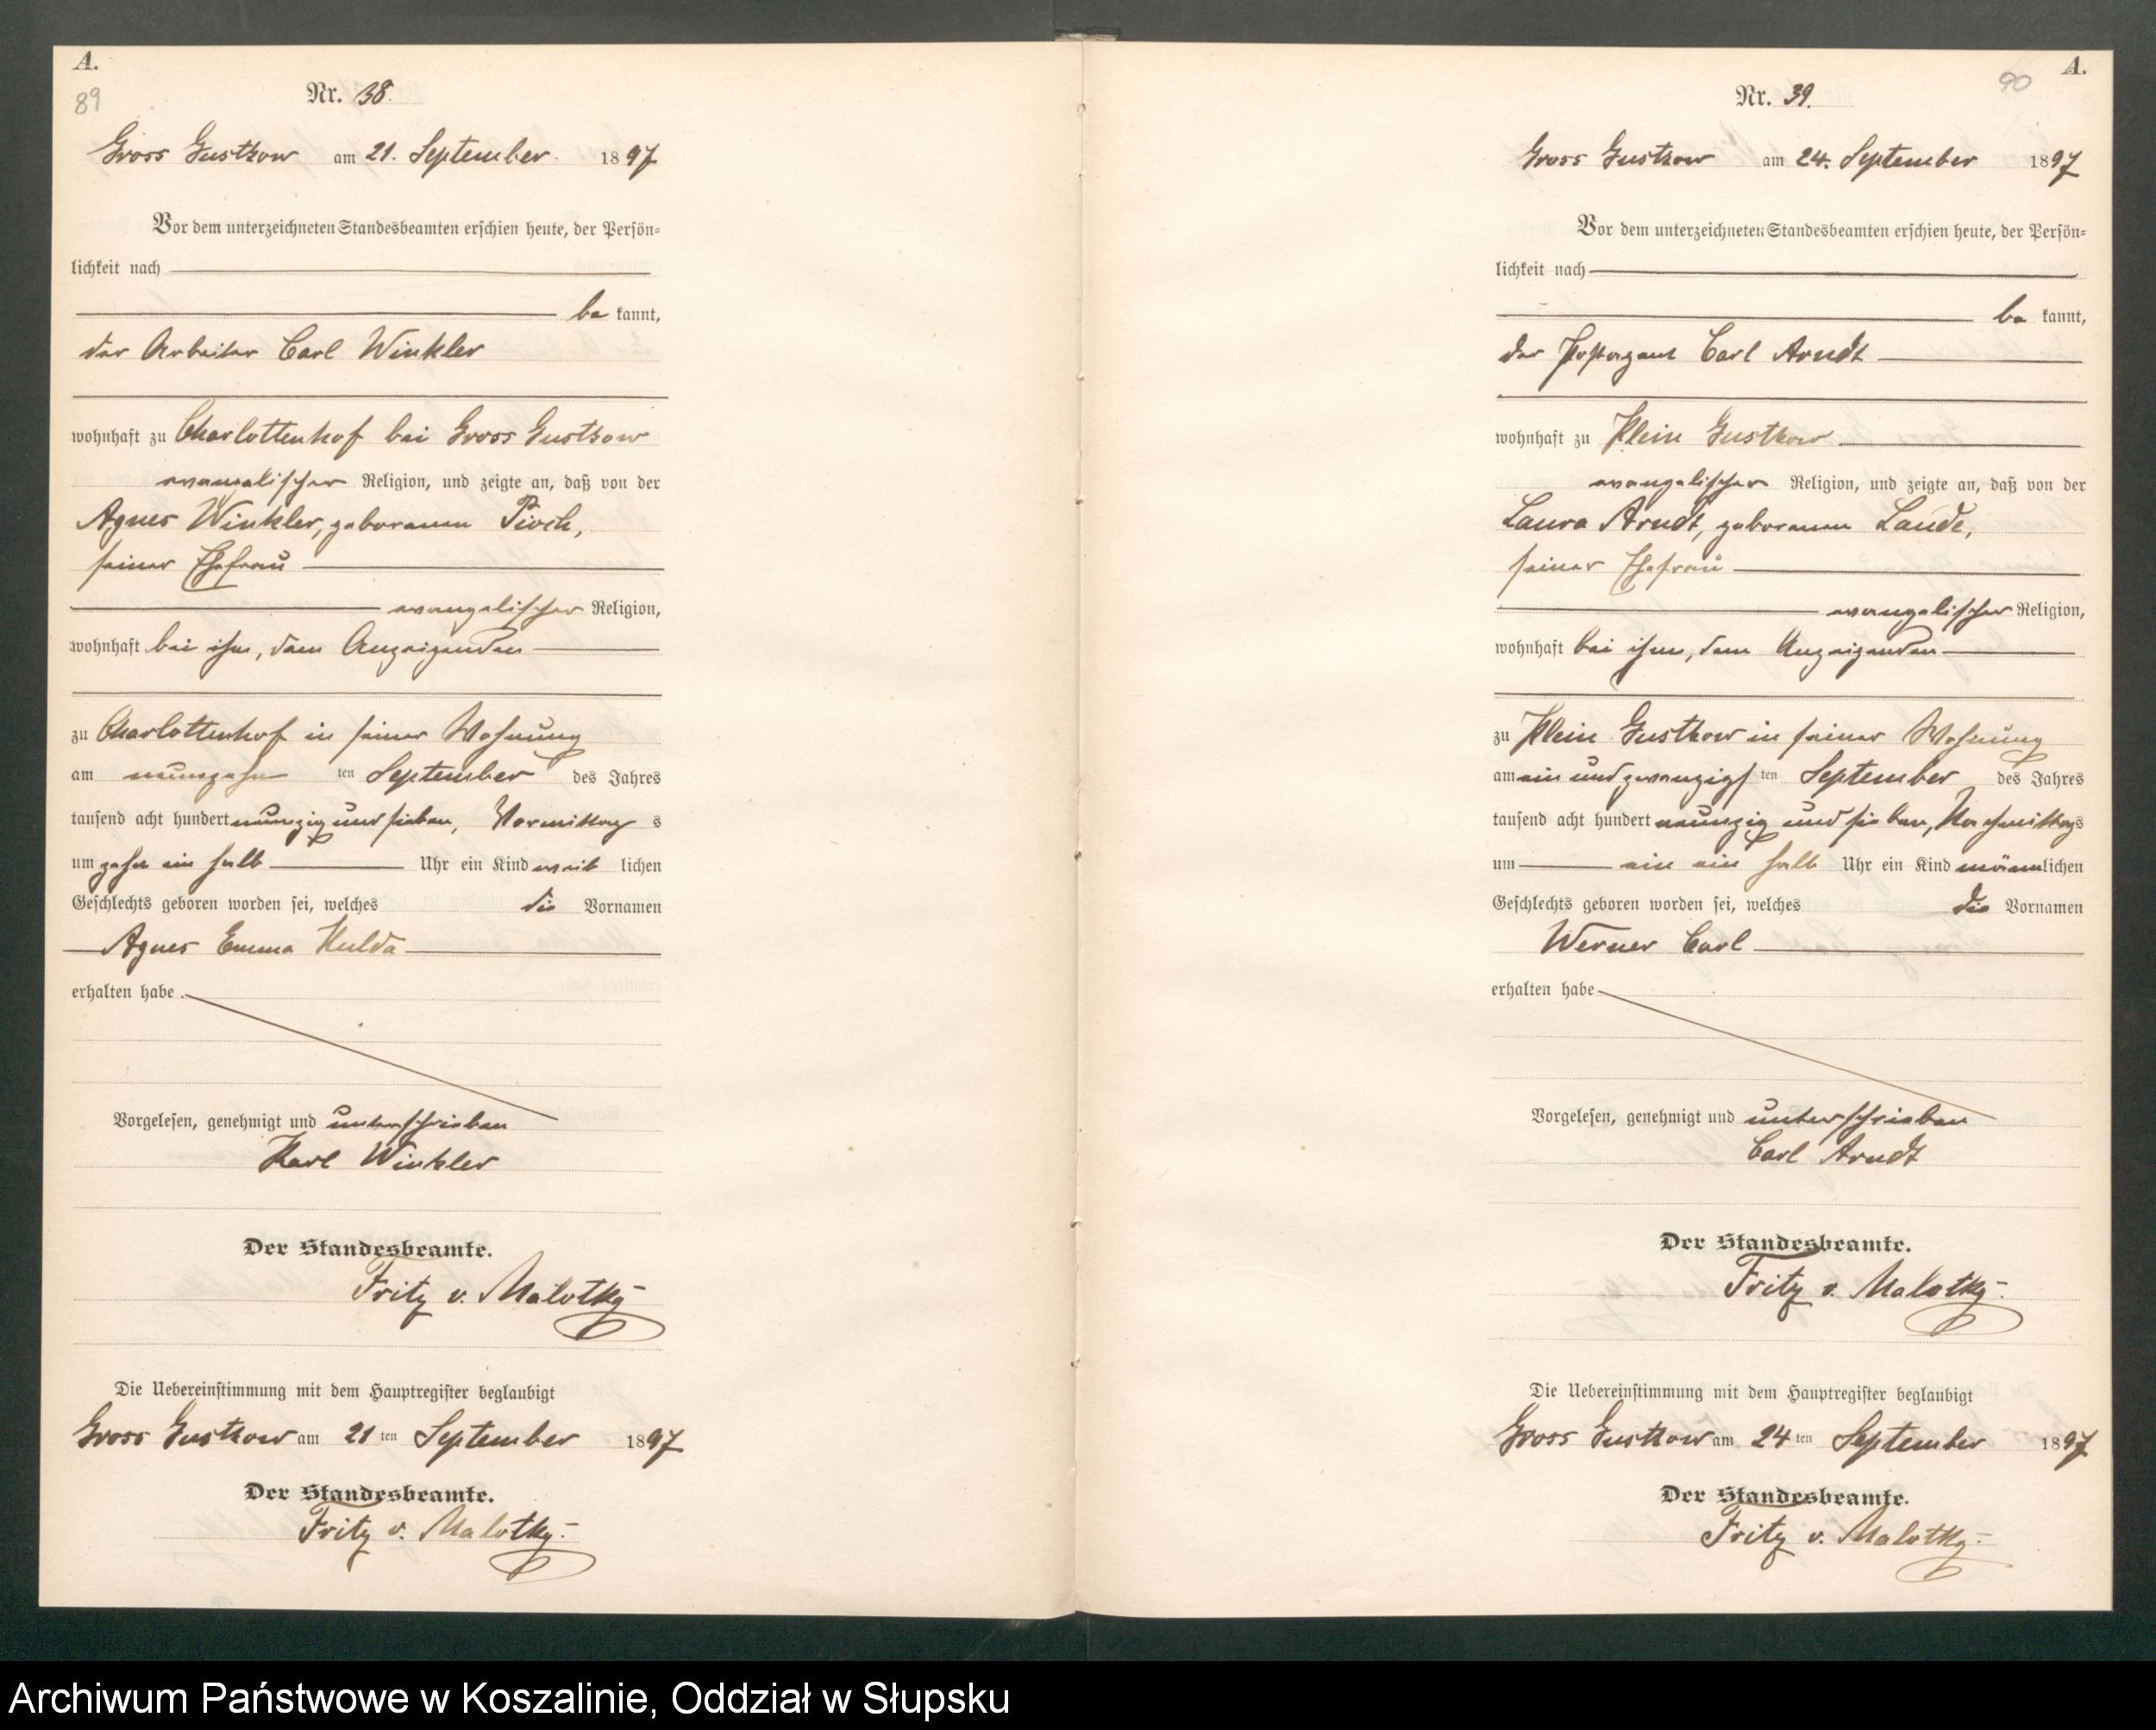 A.
89
Nr. 38.
Gross Gustkow am 21. September 1897
Vor dem unterzeichneten Standesbeamten erschien heute, der Persön-
lichkeit nach
be kannt,
der Arbeiter Carl Winkler
wohnhaft zu Charlottenhof bei Gross Gustkow
evangelischer Religion, und zeigte an, daß von der
Agnes Winkler, geborenen Pioch,
seiner Ehefrau
evangelischer Religion,
wohnhaft bei ihm, dem Anzeigenden
zu Charlottenhof in seiner Wohnung
am neunzehn ten September des Jahres
tausend acht hundert neunzig und sieben, Vormittag s
um zehn ein halb Uhr ein Kind weib lichen
Geschlechts geboren worden sei, welches die Vornamen
Agnes Emma Hulda
erhalten habe.
Vorgelesen, genehmigt und unterschrieben
Karl Winkler
Der Standesbeamte.
Fritz v. Malotky
Die Uebereinstimmung mit dem Hauptregister beglaubigt
Gross Gustkow am 21 ten September 1897
Der Standesbeamte.
Fritz v. Malotky.
A.
90
Nr. 39.
Gross Gustkow am 24. September 1897
Vor dem unterzeichneten Standesbeamten erschien heute, der Persön-
lichkeit nach
be kannt,
der Postagent Carl Arndt
wohnhaft zu Klein Gustkow
evangelischer Religion, und zeigte an, daß von der
Laura Arndt, geborenen Laude,
seiner Ehefrau
evangelischer Religion,
wohnhaft bei ihm, dem Anzeigenden
zu Klein Gustkow in seiner Wohnung
am ein und zwanzigs ten September des Jahres
tausend acht hundert neunzig und sieben, Nachmittags
um ein ein halb Uhr ein Kind männlichen
Geschlechts geboren worden sei, welches die Vornamen
Werner Carl
erhalten habe
Vorgelesen, genehmigt und unterschrieben
Carl Arndt
Der Standesbeamte.
Fritz v. Malotky.
Die Uebereinstimmung mit dem Hauptregister beglaubigt
Gross Gustkow am 24 ten September 1897
Der Standesbeamte.
Fritz v. Malotky.
Archiwum Państwowe w Koszalinie, Oddział w Słupsku